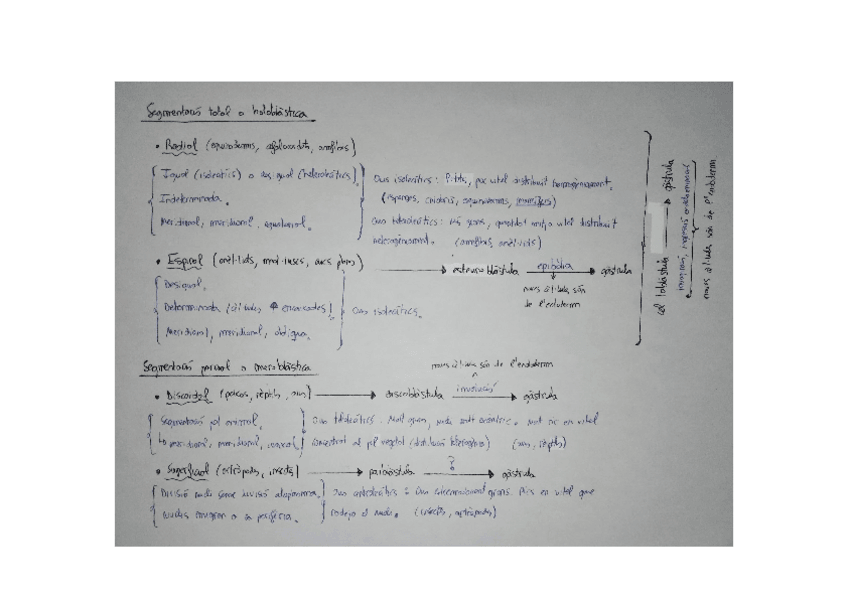 Segmentació total o holoblàstica
• Radial (equinoderms, cefalocordats, amfibis)
Igual (isolecítics) o desigual (heterolecítics).
Indeterminada.
Meridional, meridional, equatorial.
Ous isolecítics: Petits, poc vitel distribuït homogèniament.
(esponges, cnidaris, equinoderms, mamífers)
Ous telolecítics: més grans, quantitat vitel distribuït
heterogèniament. (amfibis, anèl·lids)
• Espiral (anèl·lids, mol·luscs, )
Desigual.
Determinada (cèl·lules
Meridional, meridional, obliqua.
Ous isolecítics.
estereoblàstula
epibòlia
gàstrula
noves cèl·lules són
de l'endoderm
celoblàstula
gàstrula
noves cèl·lules són de l'endoderm
Segmentació parcial o meroblàstica
noves cèl·lules són de l'endoderm
• Discoidal (peixos, rèptils, aus)
discoblàstula
involució
gàstrula
Segmentació pol animal.
↳ meridional, meridional,
Ous telolecítics: Molt grans, molt ric en vitel
concentrat al pol vegetal (distribució heterogènia) (aus, rèptils)
• Superficial (artròpods, insectes)
periblàstula
?
gàstrula
Divisió nuclis sense divisió citoplasma.
nuclis migren a la perifèria.
Ous centrolecítics: Ous grans. Rics en vitel que
rodeja el nucli. (insectes, artròpodes)